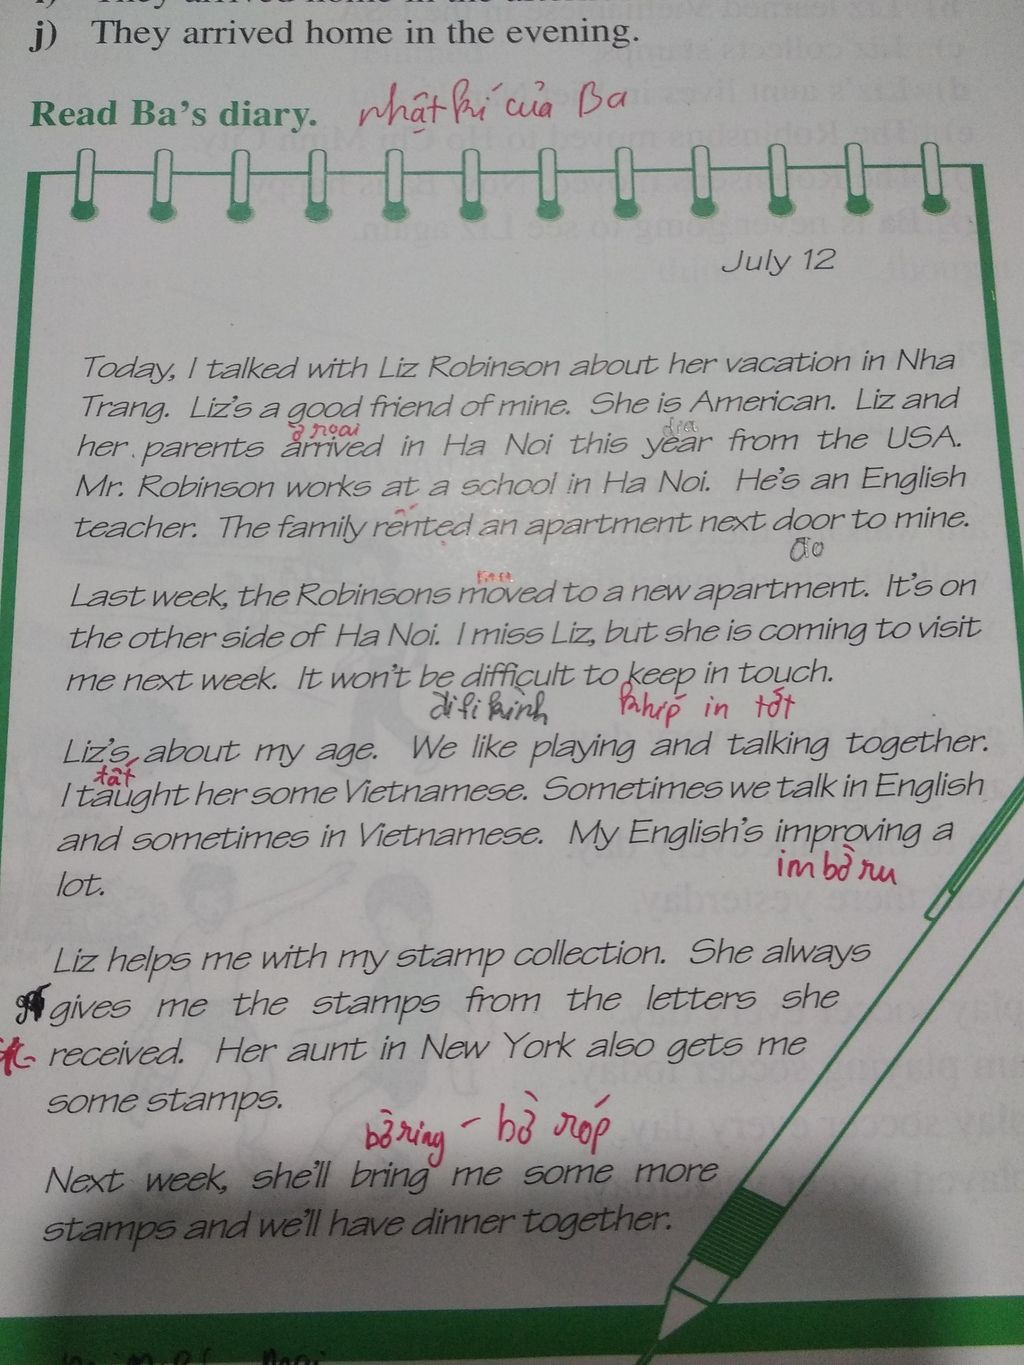 j) They arrived home in the evening.
Read Ba's diary. nhật kí của Ba
July 12
Today, I talked with Liz Robinson about her vacation in Nha
Trang. Liz's a good friend of mine. She is American. Liz and
ờ roai
her parents arrived in Ha Noi this year from the USA.
Mr. Robinson works at a school in Ha Noi. He's an English
teacher. The family rented an apartment next door to mine.
đo
Last week, the Robinsons moved to a new apartment. It's on
the other side of Ha Noi. I miss Liz, but she is coming to visit
me next week. It won't be difficult to keep in touch.
đifikình khíp in tốt
Liz's about my age. We like playing and talking together.
tất
I taught her some Vietnamese. Sometimes we talk in English
and sometimes in Vietnamese. My English's improving a
imbờru
lot.
Liz helps me with my stamp collection. She always
gives me the stamps from the letters she
received. Her aunt in New York also gets me
some stamps.
bờring - bờ róp
Next week, she'll bring me some more
stamps and we'll have dinner together.